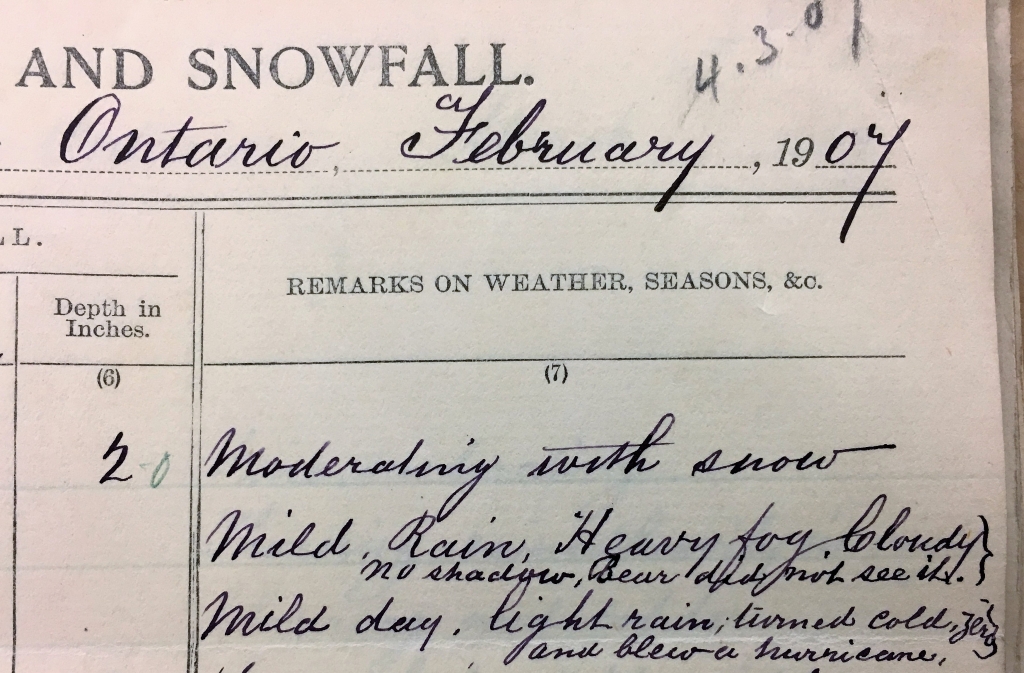 4.3.07
AND SNOWFALL.
Ontario, February, 1907
LL.
REMARKS ON WEATHER, SEASONS, &c.
Depth in
Inches.
(6)
(7)
2.0
Moderating with snow
Mild, Rain, Heavy fog. Cloudy
no shadow, Bear did not see it.
Mild day. light rain, turned cold, zero
and blew a hurricane.